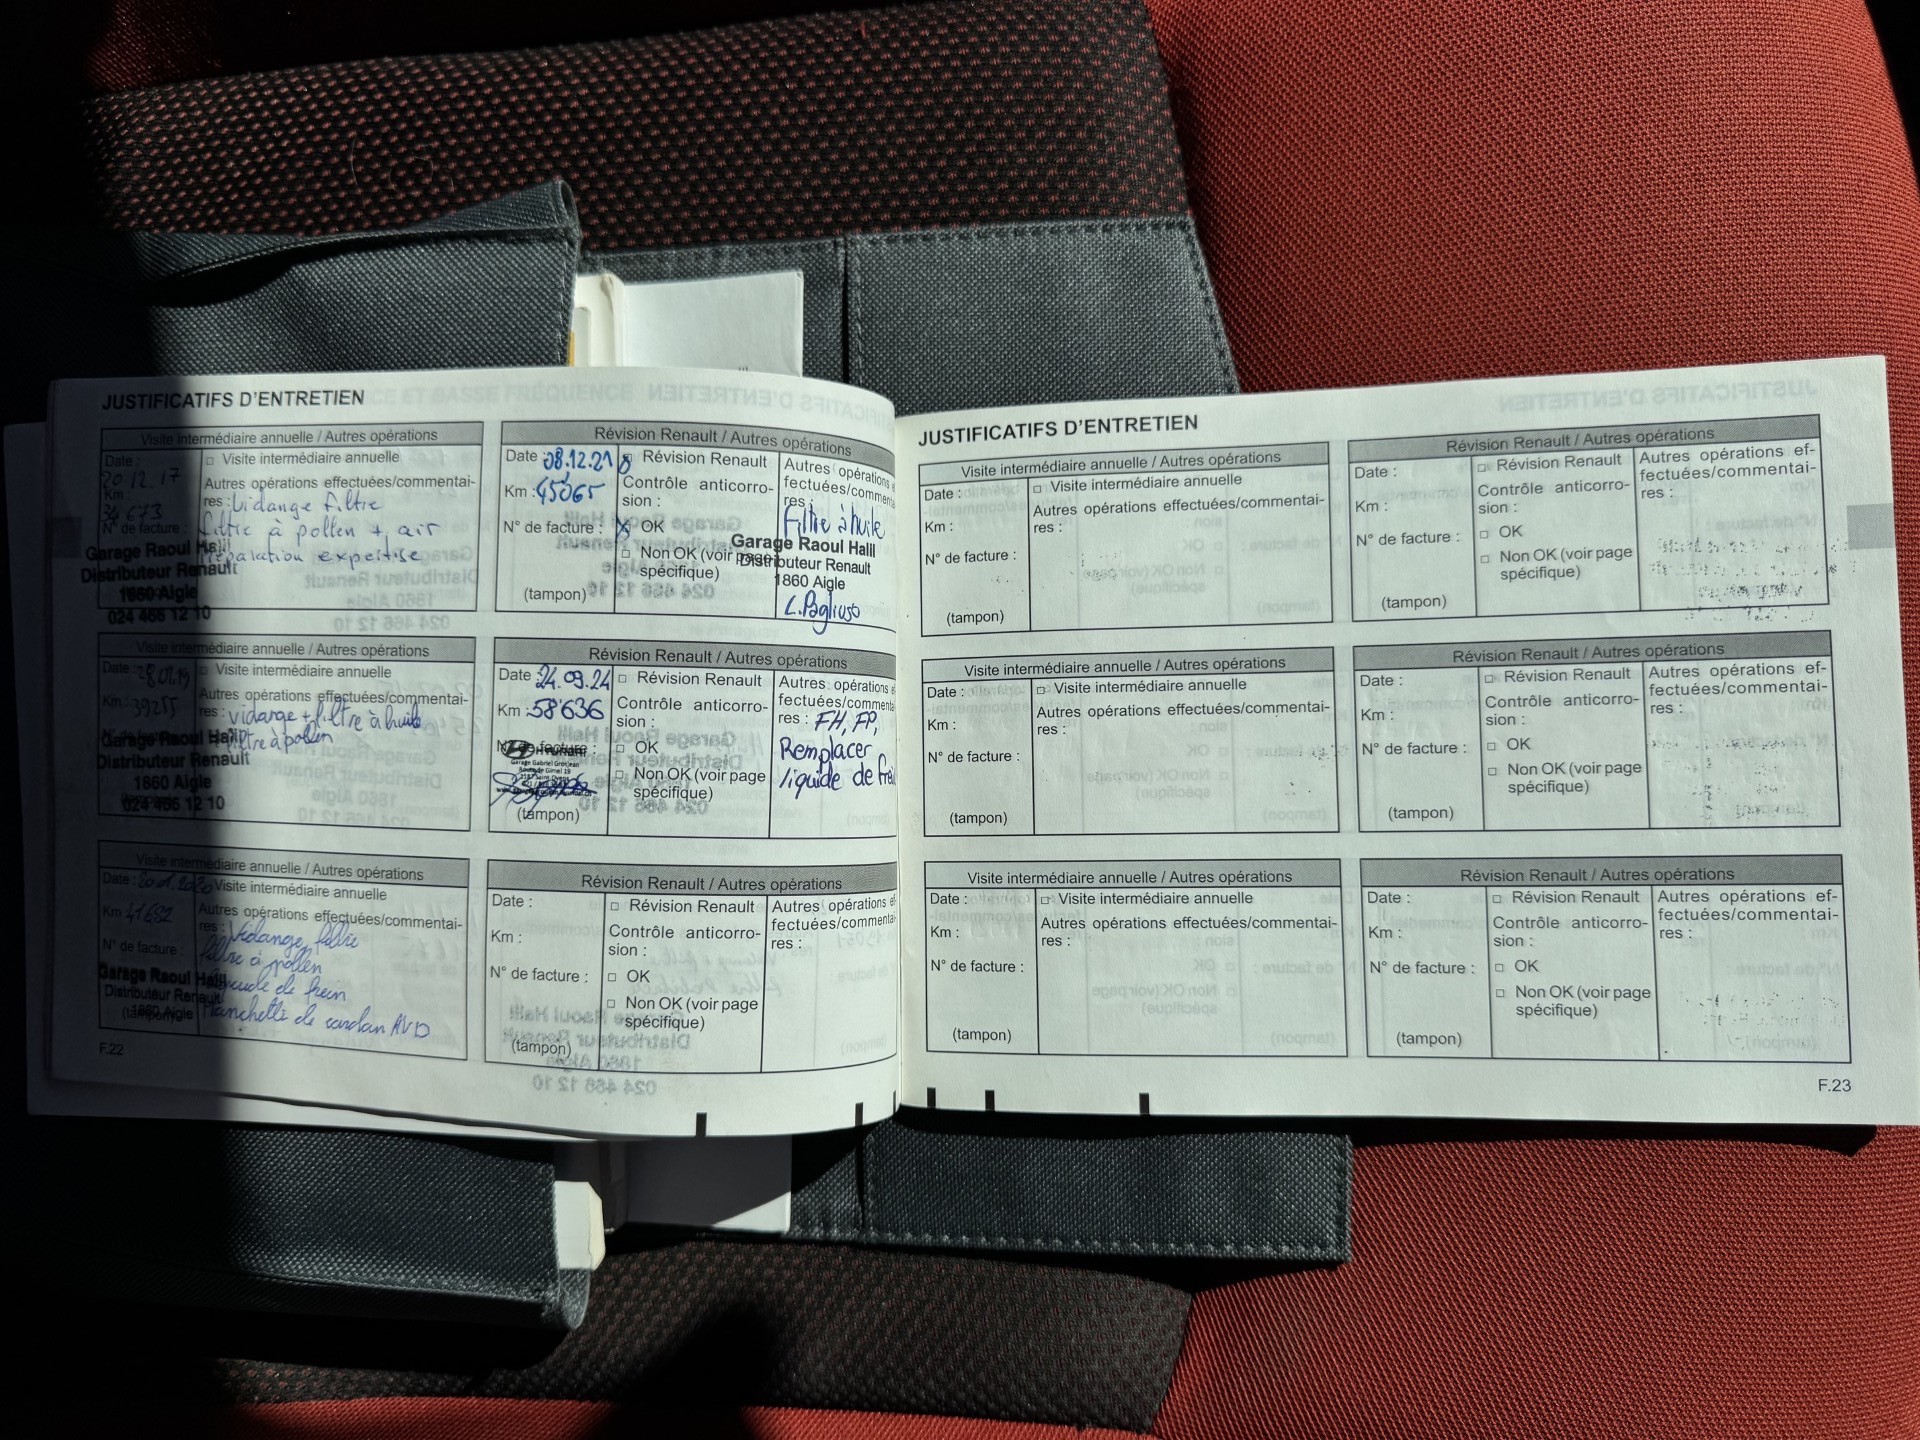 JUSTIFICATIFS D'ENTRETIEN
Visite intermédiaire annuelle / Autres opérations
Date :
20.12.17
Km :
34673
N° de facture :
□ Visite intermédiaire annuelle
Autres opérations effectuées/commentai-
res : Vidange filtre
filtre à pollen + air
Préparation expertise
Garage Raoul Halil
Distributeur Renault
1860 Aigle
024 466 12 10
Révision Renault / Autres opérations
Date : 08.12.21
Km : 45'065
N° de facture :
(tampon)
Révision Renault
Contrôle anticorro-
sion :
OK
□ Non OK (voir page
spécifique)
Autres opérations
fectuées/commenta
res :
Filtre à huile
Garage Raoul Halil
Distributeur Renault
1860 Aigle
L. Pagliuso
Visite intermédiaire annuelle / Autres opérations
Date : 28.01.19
Km : 39255
□ Visite intermédiaire annuelle
Autres opérations effectuées/commentai-
res : vidange + filtre à huile
filtre à pollen
Garage Raoul Halil
Distributeur Renault
1860 Aigle
024 466 12 10
Révision Renault / Autres opérations
Date : 24.09.24
Km : 58'636
N° de facture :
Garage Gabriel Grosjean
(tampon)
□ Révision Renault
Contrôle anticorro-
sion :
□ OK
□ Non OK (voir page
spécifique)
Autres opérations e
fectuées/commenta
res : FH, FP,
Remplacer
liquide de frei
Visite intermédiaire annuelle / Autres opérations
Date : 20.01.2020
Km 41682
N° de facture :
Visite intermédiaire annuelle
Autres opérations effectuées/commentai-
res : Vidange, filtre
filtre à pollen
de frein
Manchette de cardan AVD
Garage Raoul Halil
Distributeur Renault
1860 Aigle
(tampon)
Révision Renault / Autres opérations
Date :
Km :
N° de facture :
(tampon)
□ Révision Renault
Contrôle anticorro-
sion :
□ OK
□ Non OK (voir page
spécifique)
Autres opérations e
fectuées/commenta
res :
F.22
JUSTIFICATIFS D'ENTRETIEN
Visite intermédiaire annuelle / Autres opérations
Date :
Km :
N° de facture :
(tampon)
□ Visite intermédiaire annuelle
Autres opérations effectuées/commentai-
res :
Révision Renault / Autres opérations
Date :
Km :
N° de facture :
(tampon)
□ Révision Renault
Contrôle anticorro-
sion :
□ OK
□ Non OK (voir page
spécifique)
Autres opérations ef-
fectuées/commentai-
res :
Visite intermédiaire annuelle / Autres opérations
Date :
Km :
N° de facture :
(tampon)
□ Visite intermédiaire annuelle
Autres opérations effectuées/commentai-
res :
Révision Renault / Autres opérations
Date :
Km :
N° de facture :
(tampon)
□ Révision Renault
Contrôle anticorro-
sion :
□ OK
□ Non OK (voir page
spécifique)
Autres opérations ef-
fectuées/commentai-
res :
Visite intermédiaire annuelle / Autres opérations
Date :
Km :
N° de facture :
(tampon)
□ Visite intermédiaire annuelle
Autres opérations effectuées/commentai-
res :
Révision Renault / Autres opérations
Date :
Km :
N° de facture :
(tampon)
□ Révision Renault
Contrôle anticorro-
sion :
□ OK
□ Non OK (voir page
spécifique)
Autres opérations ef-
fectuées/commentai-
res :
F.23